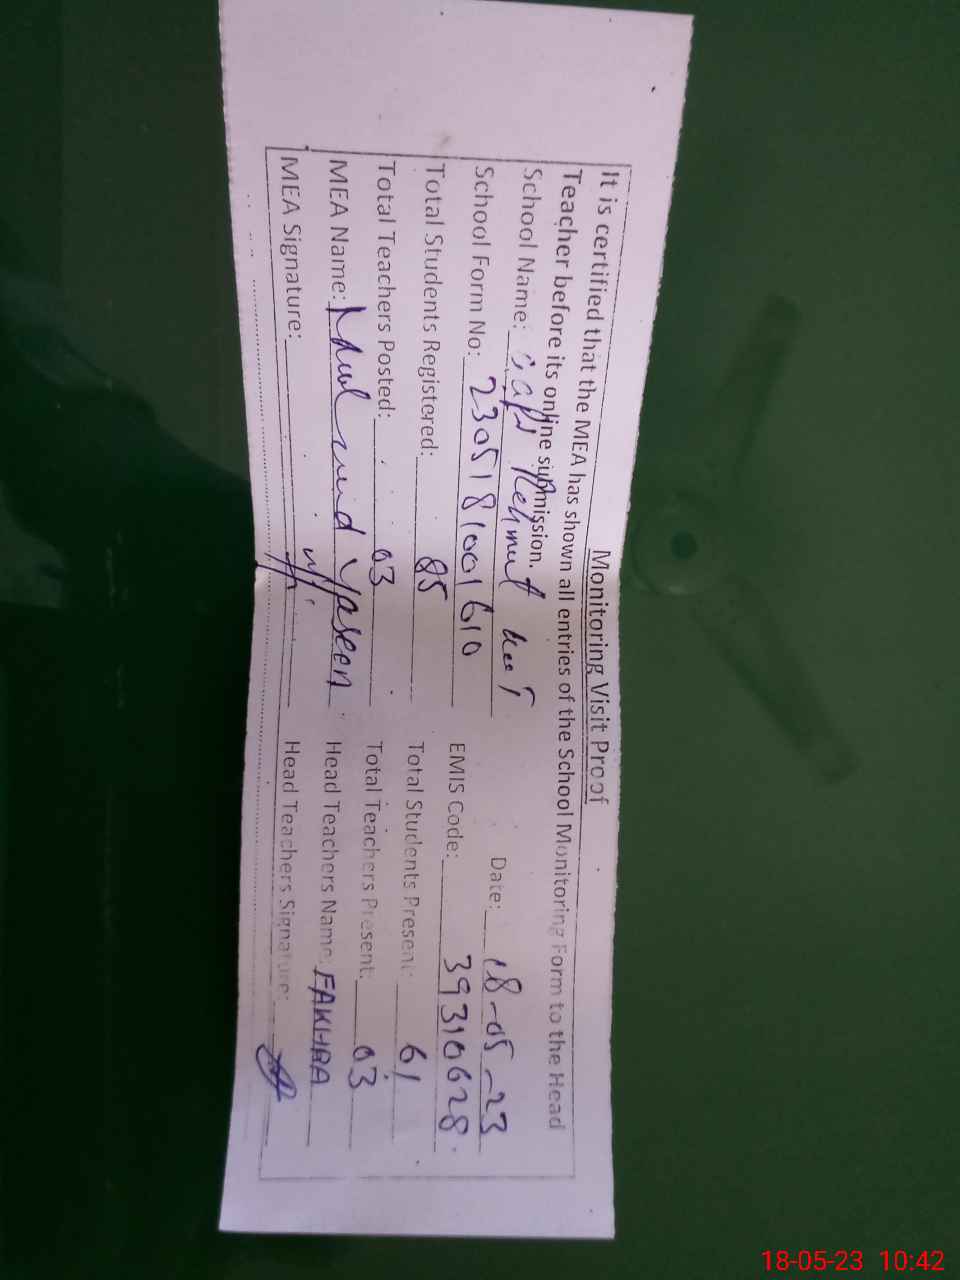 Monitoring Visit Proof
It is certified that the MEA has shown all entries of the School Monitoring Form to the Head
Teacher before its online submission.
School Name: Date: 18-05-23
School Form No: 2305181001610 EMIS Code: 39310628
Total Students Registered: 85 Total Students Present: 61
Total Teachers Posted: 03 Total Teachers Present: 03
MEA Name: Yaseen Head Teachers Name: FAKHRA
MEA Signature: Head Teachers Signature:
18-05-23 10:42